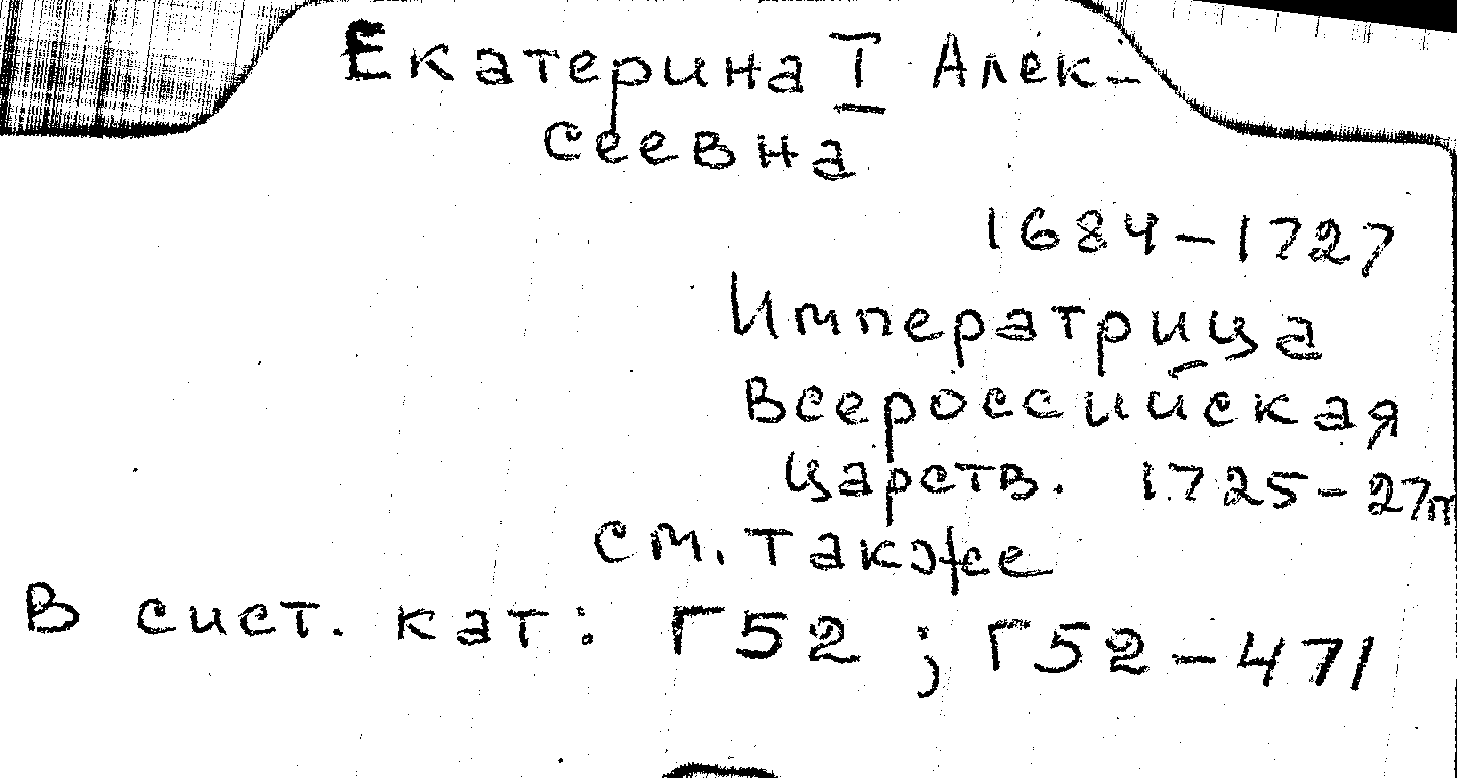 Екатерина I Алек-
сеевна
1684-1727
Императрица
Всероссийская
царств. 1725-27гг
см. также
В сист. кат: Г52 ; Г52-471